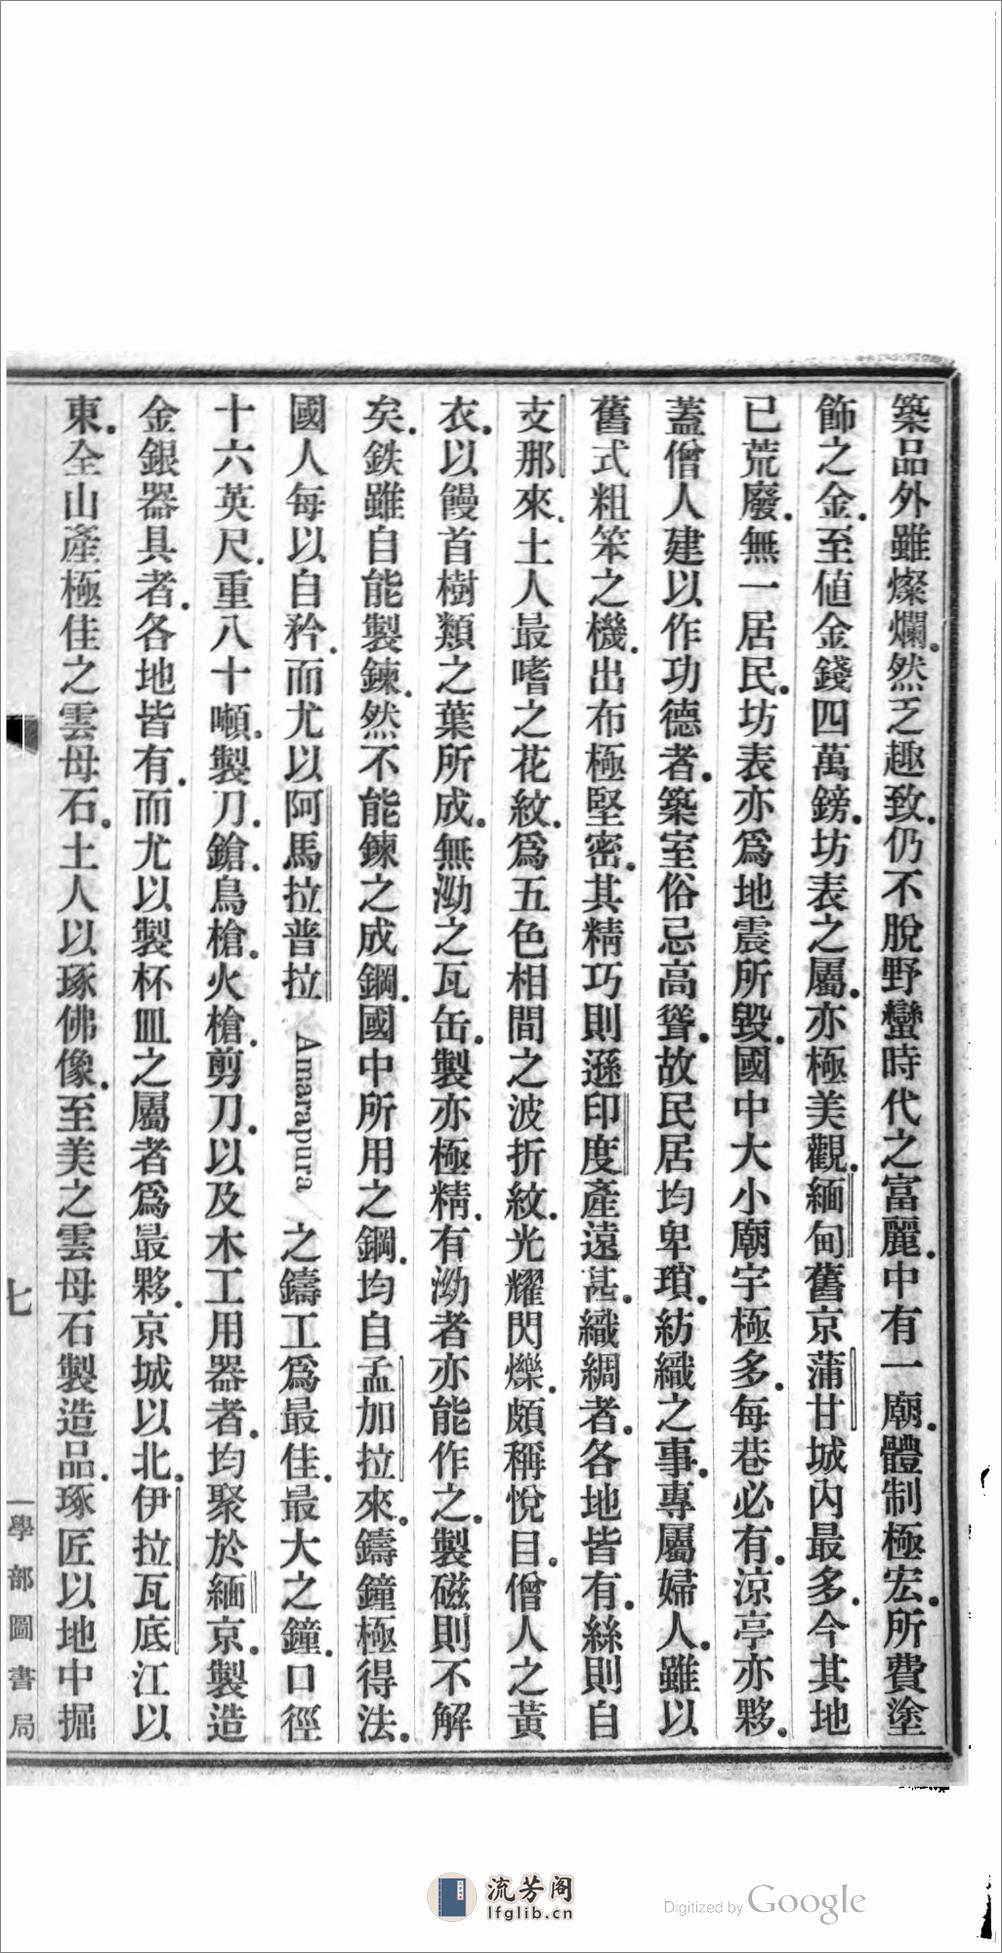 築品外雖燦爛。然乏趣致。仍不脫野蠻時代之富麗。中有一廟。體制極宏。所費塗
飾之金。至値金錢四萬鎊。坊表之屬。亦極美觀。緬甸舊京蒲甘城內最多。今其地
已荒廢。無一居民。坊表亦爲地震所毀。國中大小廟宇極多。每巷必有。涼亭亦夥。
蓋僧人建以作功德者。築室俗忌高聳。故民居均卑瑣。紡織之事。專屬婦人。雖以
舊式粗笨之機。出布極堅密。其精巧則遜印度產遠甚。織綢者。各地皆有。絲則自
支那來。土人最嗜之花紋。爲五色相間之波折紋。光耀閃爍。頗稱悅目。僧人之黃
衣。以饅首樹類之葉所成。無泑之瓦缶。製亦極精。有泑者亦能作之。製磁則不解
矣。鉄雖自能製鍊。然不能鍊之成鋼。國中所用之鋼。均自孟加拉來。鑄鐘極得法。
國人每以自矜。而尤以阿馬拉普拉 Amarapura 之鑄工爲最佳。最大之鐘。口徑
十六英尺。重八十噸。製刀。鎗。鳥槍。火槍。剪刀。以及木工用器者。均聚於緬京。製造
金銀器具者。各地皆有。而尤以製杯皿之屬者爲最夥。京城以北。伊拉瓦底江以
東。全山產極佳之雲母石。土人以琢佛像。至美之雲母石製造品。琢匠以地中掘
七
學部圖書局
流芳阁
lfglib.cn
Digitized by Google